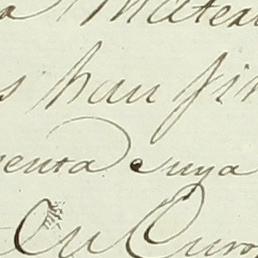 a Mater
s han fir
enta cuya
En Euro